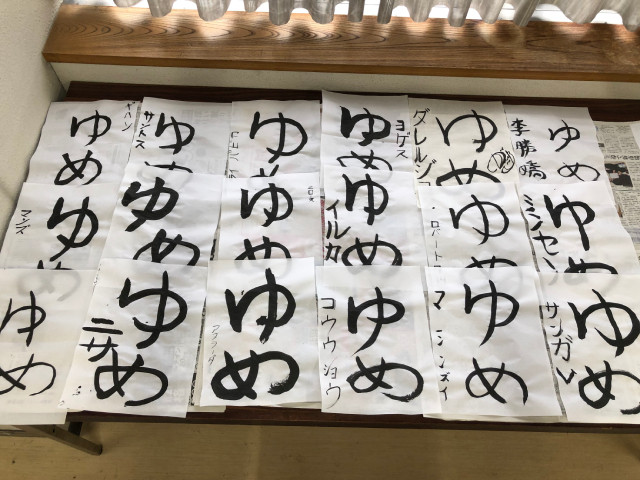 ゆめ
ヤハン
ゆめ
サントス
ゆめ
ゆめ
ヨゲス
ゆめ
ダレルジ
ゆめ
李勝晴
ゆめ
マンダス
ゆめ
ゆめ
ゆめ
イルカ
ゆめ
ロバート
ゆめ
ミンセン
ゆめ
ゆめ
ニサ
ゆめ
ゆめ
コウウショウ
ゆめ
マシンズイ
ゆめ
サンガレ